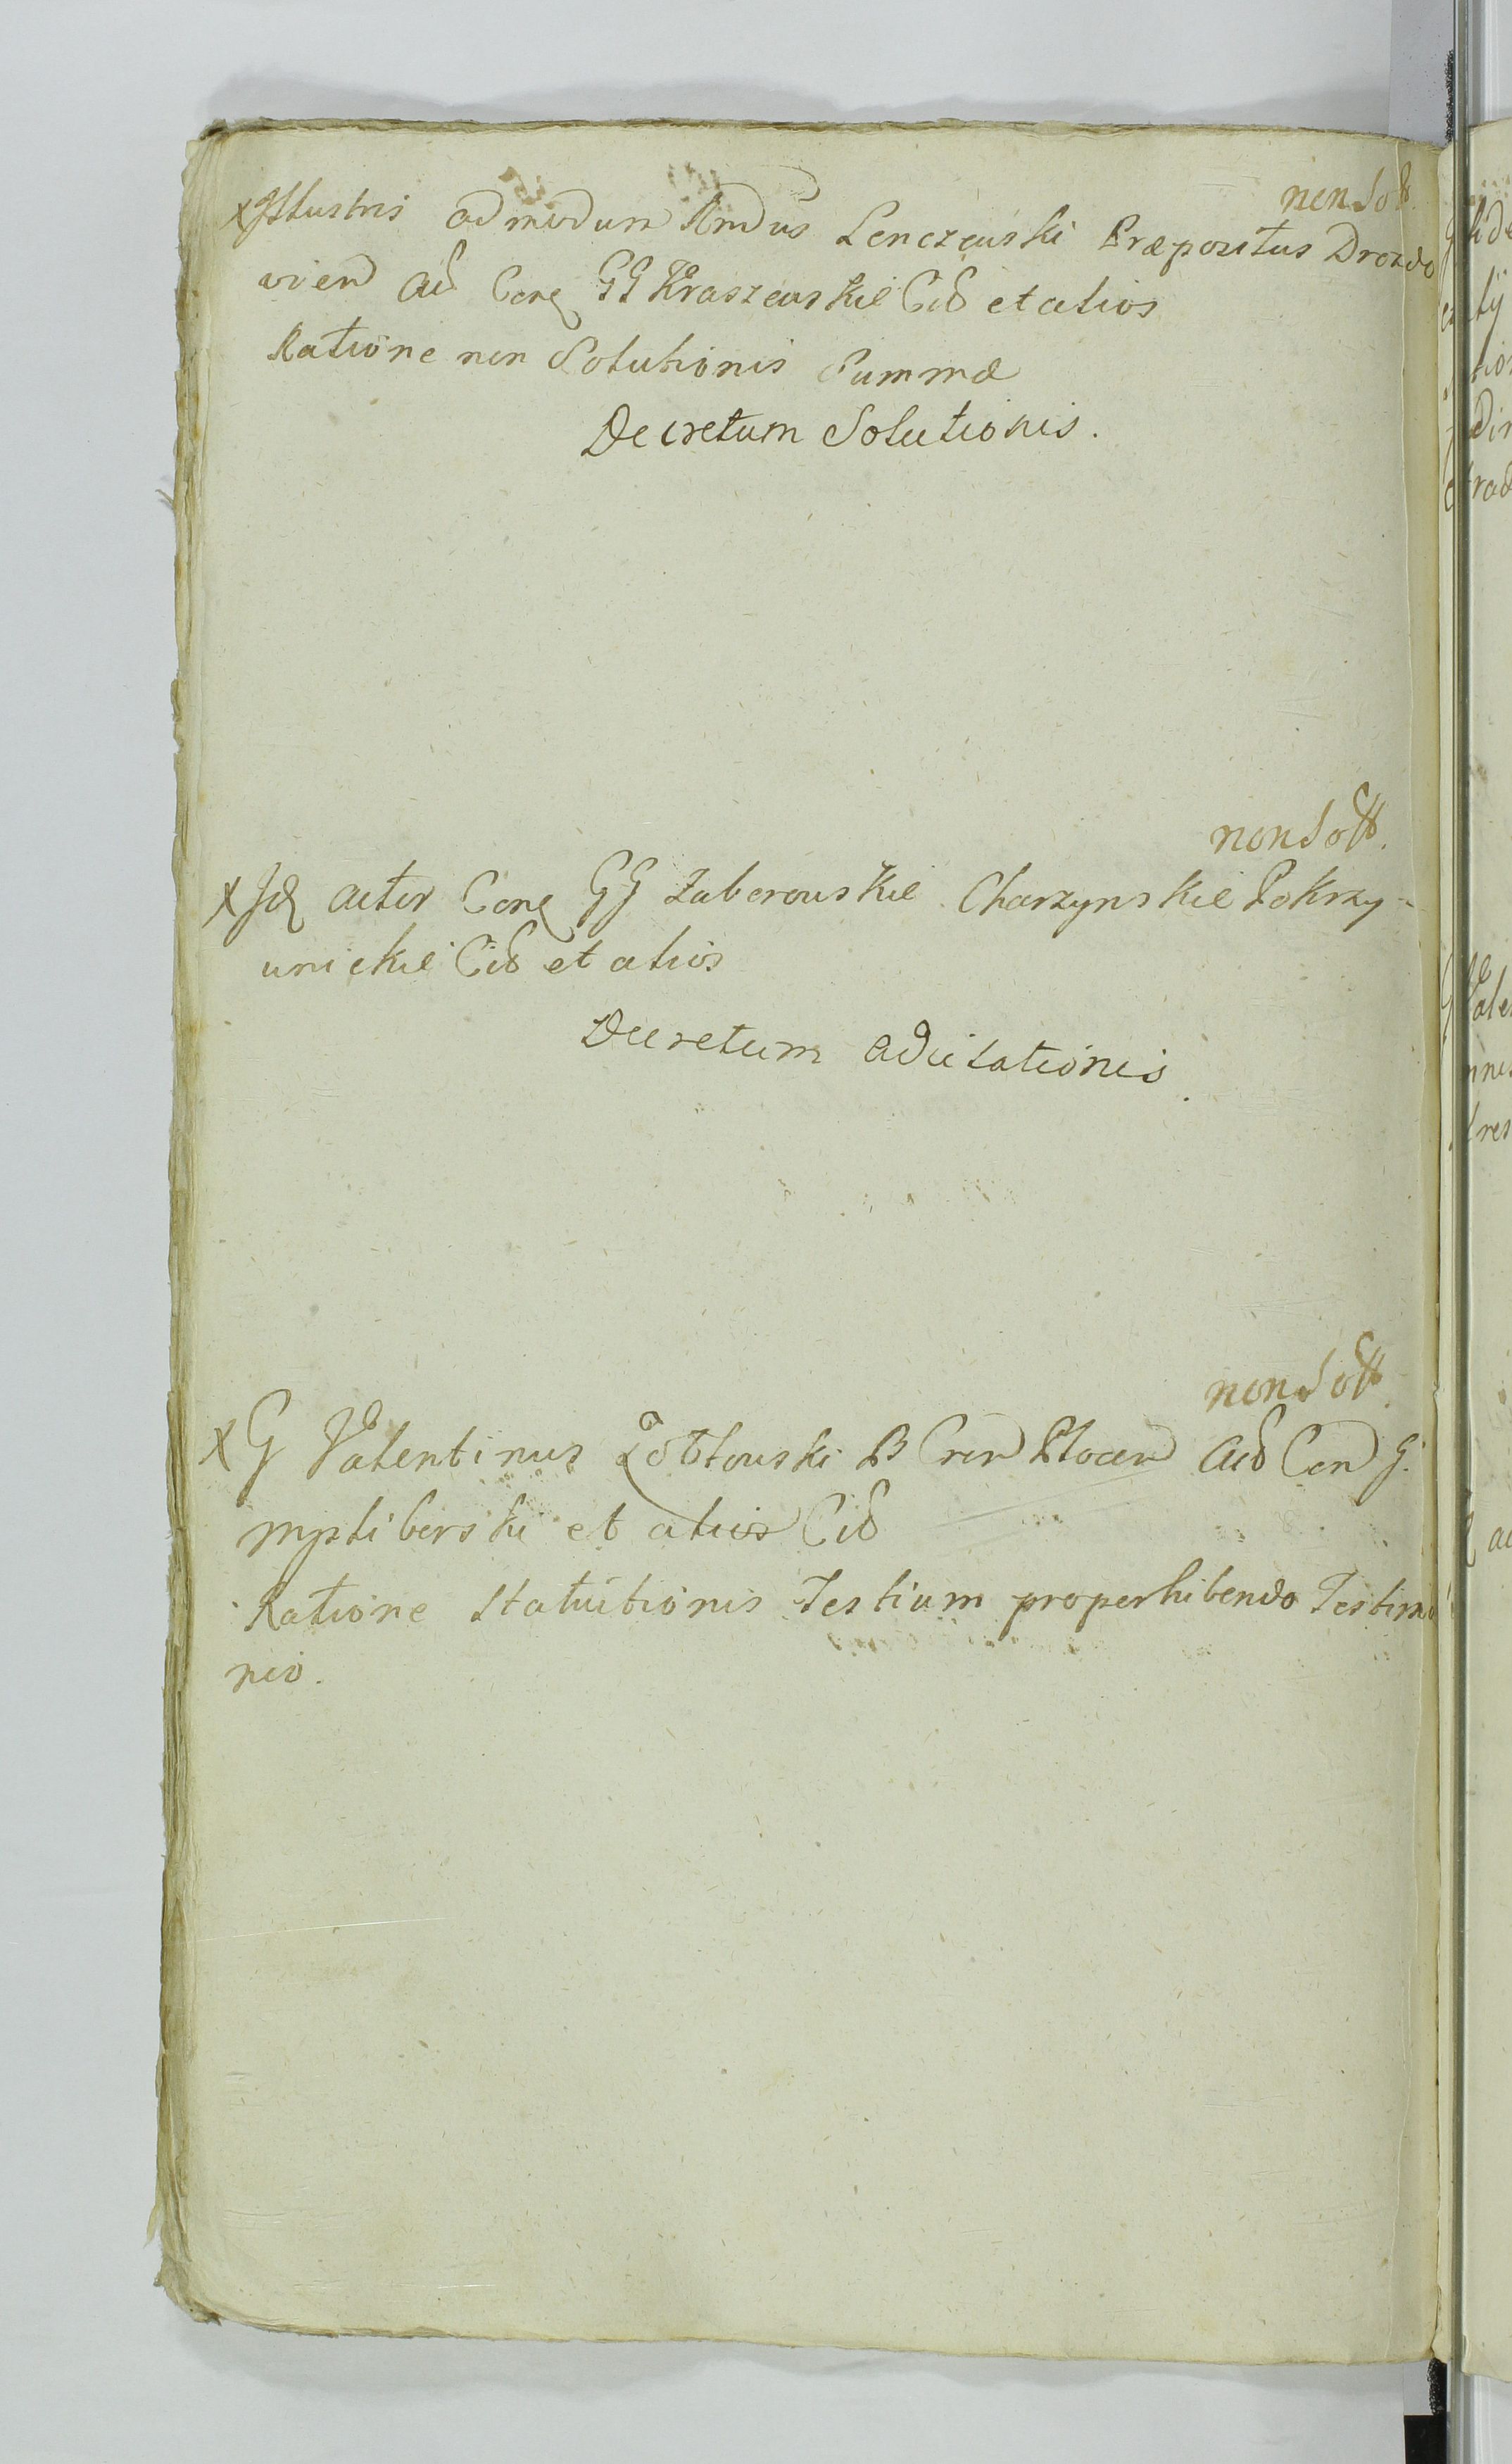 non Solt.
x Illustris admodum Rndus Lenczewski Præpositus Drozdo
vien Acs Conq GG Kraszewskie Cis et alios
Ratione non Solutionis Summæ
Decretum Solutionis.
non Solt.
x Idq actor Conq GG Zaborowskie Charzynskie Pokrzy-
wnickie Cis et alios
Decretum adcitationis.
non Solt.
x G Valentinus Zołtowski B Crer Plocen Acs Con G.
Mysliborski et alios Cis
Ratione Statuitionis Testium pro perhibendo Testimo
nio.